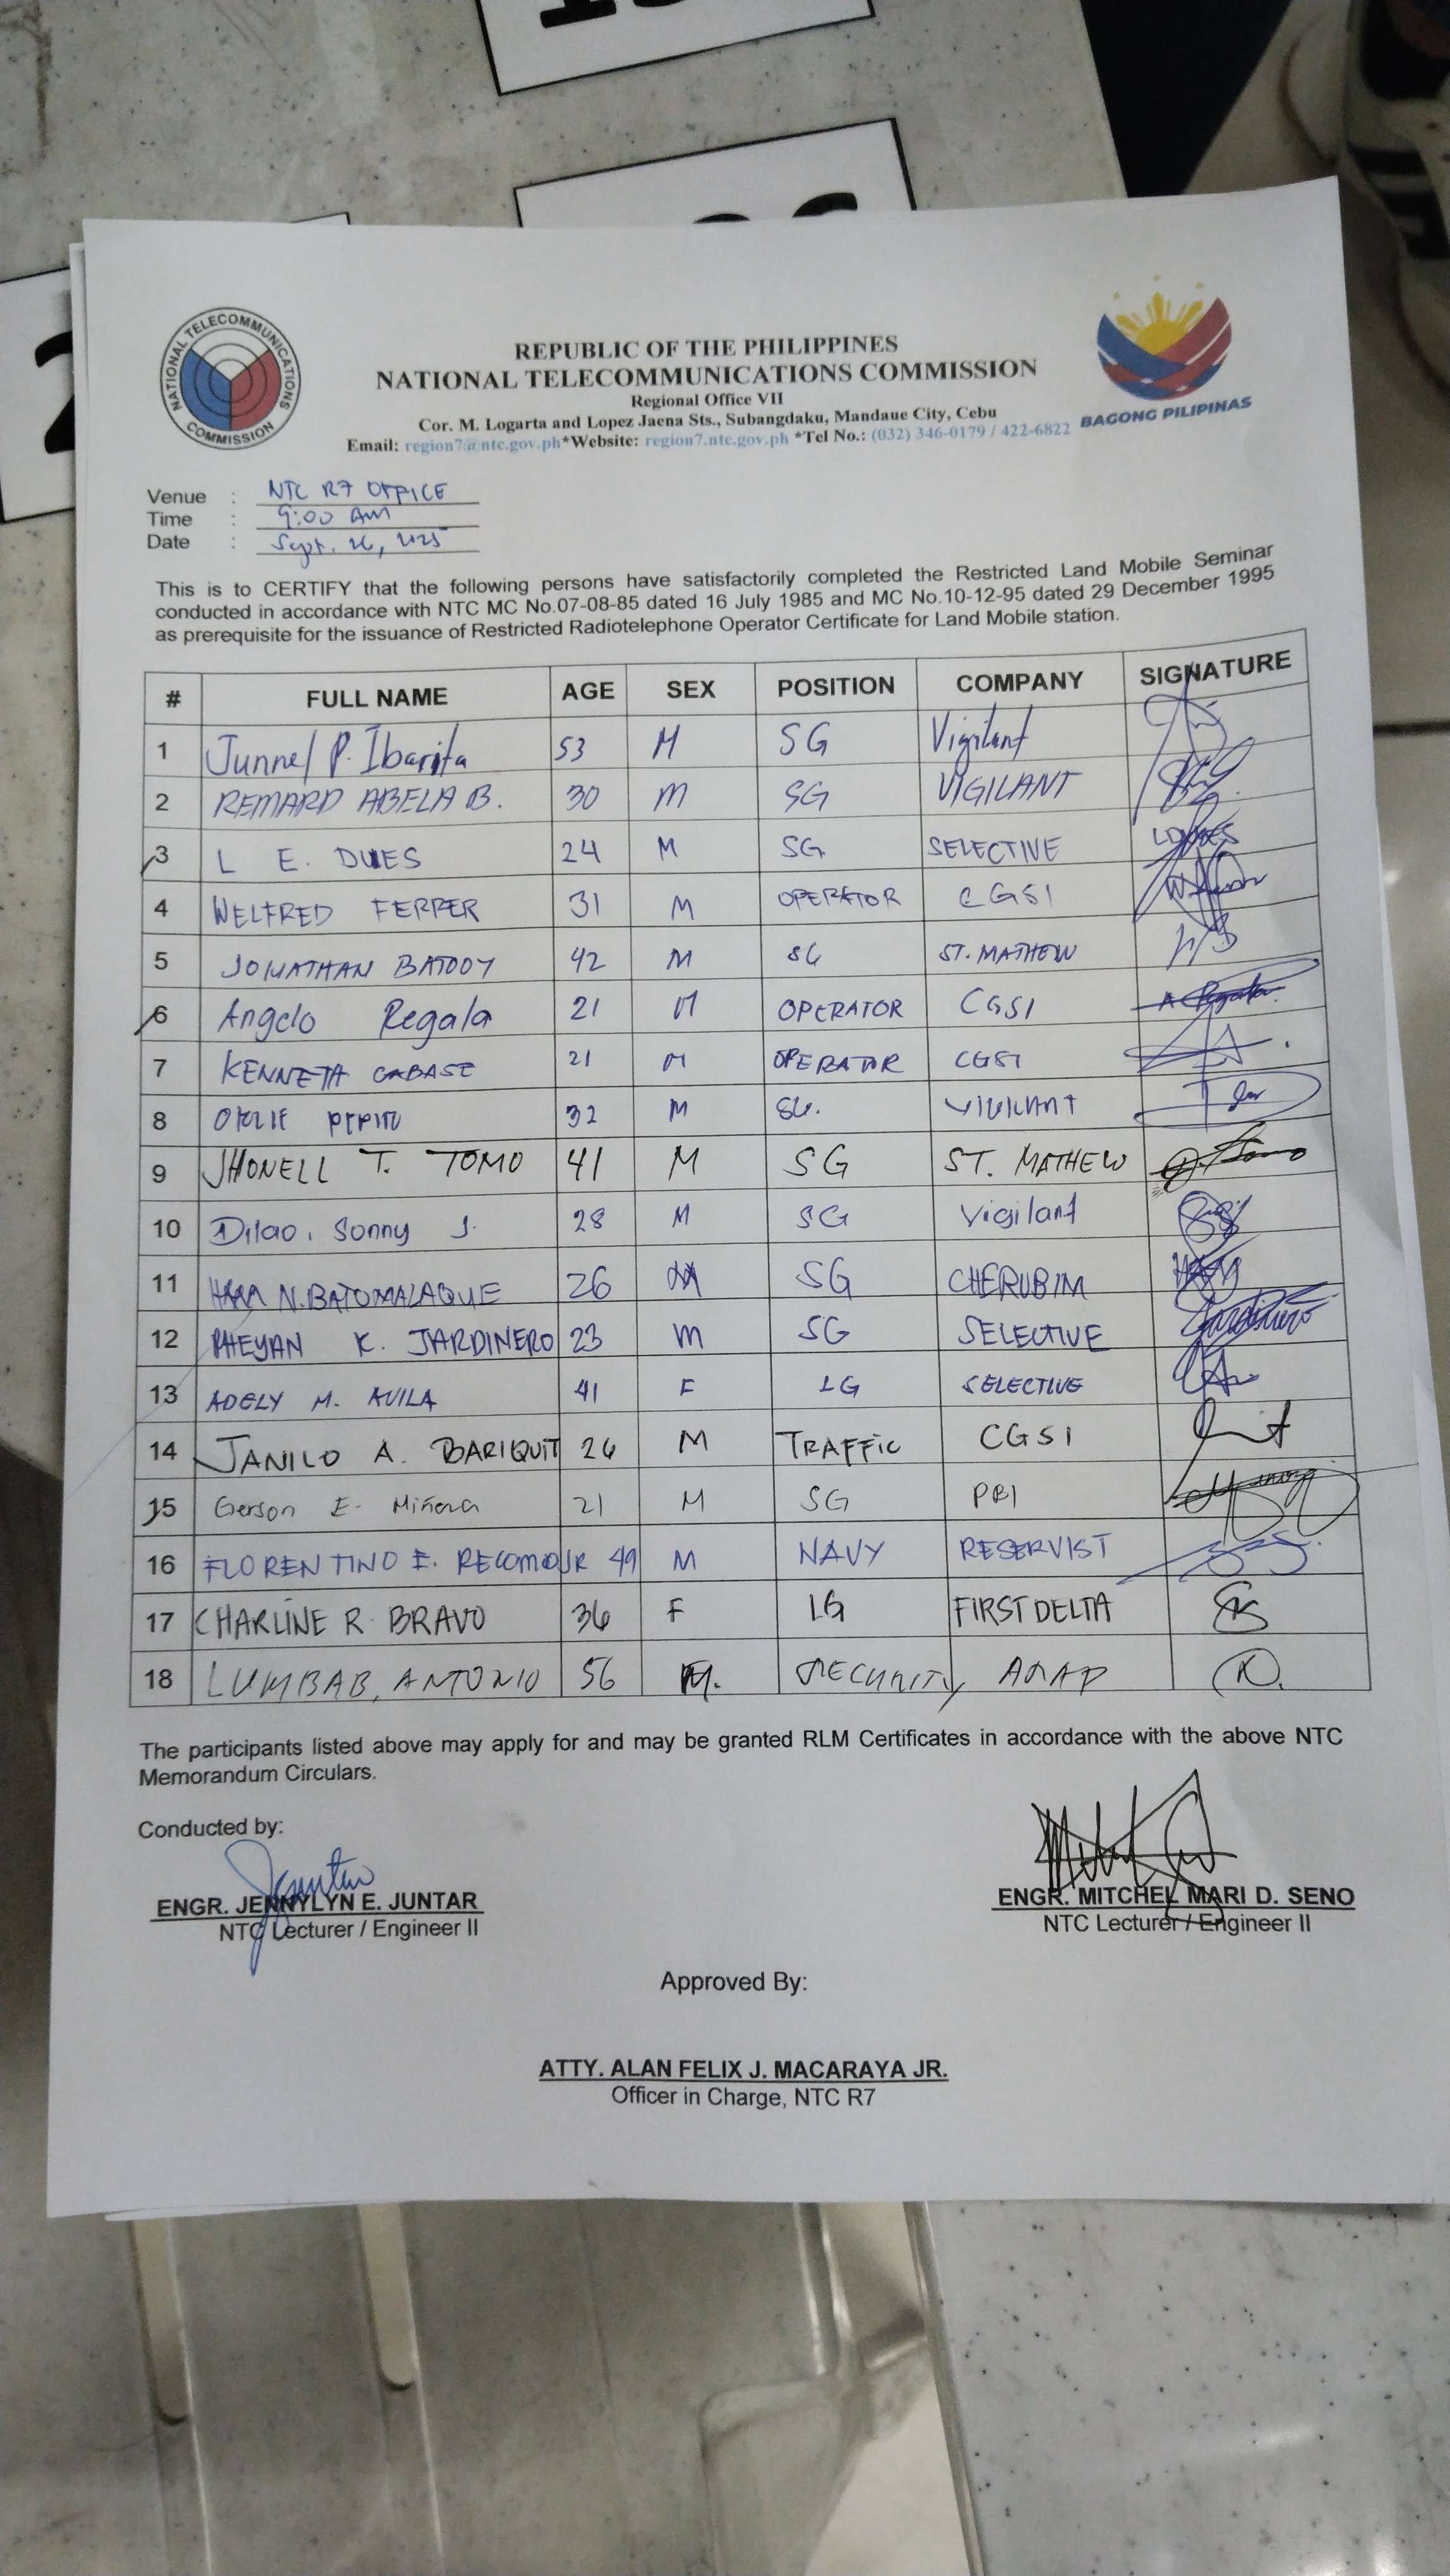 NATIONAL TELECOMMUNICATIONS COMMISSION
REPUBLIC OF THE PHILIPPINES
NATIONAL TELECOMMUNICATIONS COMMISSION
Regional Office VII
Cor. M. Logarta and Lopez Jaena Sts., Subangdaku, Mandaue City, Cebu
Email: region7@ntc.gov.ph*Website: region7.ntc.gov.ph *Tel No.: (032) 346-0179 / 422-6822
BAGONG PILIPINAS
Venue : NTC R7 OFFICE
Time : 9:00 AM
Date : Sept. 26, 2025
This is to CERTIFY that the following persons have satisfactorily completed the Restricted Land Mobile Seminar
conducted in accordance with NTC MC No.07-08-85 dated 16 July 1985 and MC No.10-12-95 dated 29 December 1995
as prerequisite for the issuance of Restricted Radiotelephone Operator Certificate for Land Mobile station.
# FULL NAME AGE SEX POSITION COMPANY SIGNATURE
1 Junnel P. Ibarita 53 M SG Vigilant
2 REMARD ABELA B. 30 M SG VIGILANT
3 L E. DUES 24 M SG SELECTIVE
4 WELFRED FERRER 31 M OPERATOR CGSI
5 JONATHAN 42 M SG ST. MATHEW
6 Angelo Regala 21 M OPERATOR CGSI
7 KENNETH CABASE 21 M OPERATOR CGSI
8 PEPITO 32 M SG. VIGILANT
9 JHONELL T. TOMO 41 M SG ST. MATHEW
10 Dilao, Sonny J. 28 M SG Vigilant
11 N. BATOMALAQUE 26 M SG CHERUBIM
12 RHEYAN K. JARDINERO 23 M SG SELECTIVE
13 ADELY M. AVILA 41 F LG SELECTIVE
14 JANILO A. BARIQUIT 26 M TRAFFIC CGSI
15 Gerson E. 21 M SG PRI
16 FLORENTINO E. RECOMO JR 49 M NAVY RESERVIST
17 CHARLINE R. BRAVO 36 F LG FIRST DELTA
18 LUMBAB, ANTONIO 56 M. SECURITY
The participants listed above may apply for and may be granted RLM Certificates in accordance with the above NTC
Memorandum Circulars.
Conducted by:
ENGR. JENNYLYN E. JUNTAR
NTC Lecturer / Engineer II
ENGR. MITCHEL MARI D. SENO
NTC Lecturer / Engineer II
Approved By:
ATTY. ALAN FELIX J. MACARAYA JR.
Officer in Charge, NTC R7